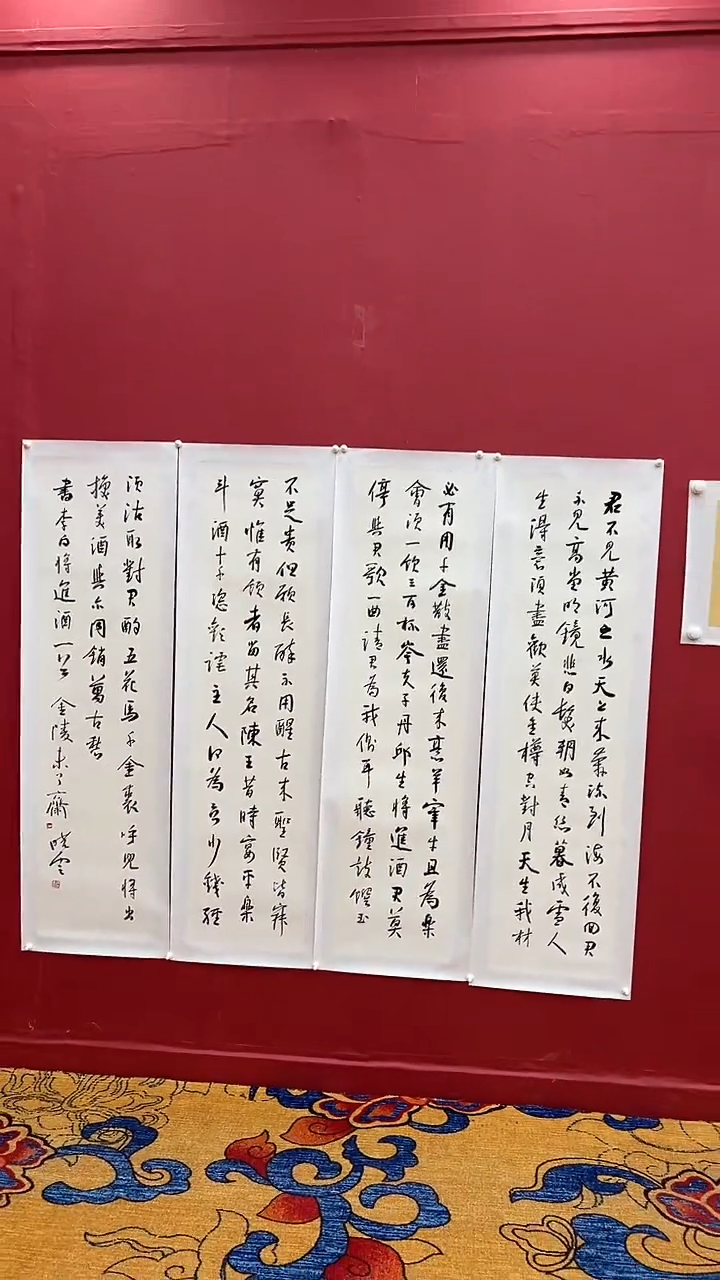 君不見黃河之水天上来奔流到海不復回君
不見高堂明鏡悲白髮朝如青絲暮成雪人
生得意須盡歡莫使金樽空對月天生我材
必有用千金散盡還復来烹羊宰牛且為樂
會須一飲三百杯岑夫子丹邱生將進酒君莫
停與君歌一曲請君為我側耳聽鐘鼓饌玉
不足貴但願長醉不用醒古来聖賢皆寂
寞惟有飲者留其名陳王昔時宴平樂
斗酒十千恣歡謔主人何為言少錢徑
須沽取對君酌五花馬千金裘呼兒將出
換美酒與尔同銷萬古愁
書李白將進酒一首 金陵未了齋 曉雲